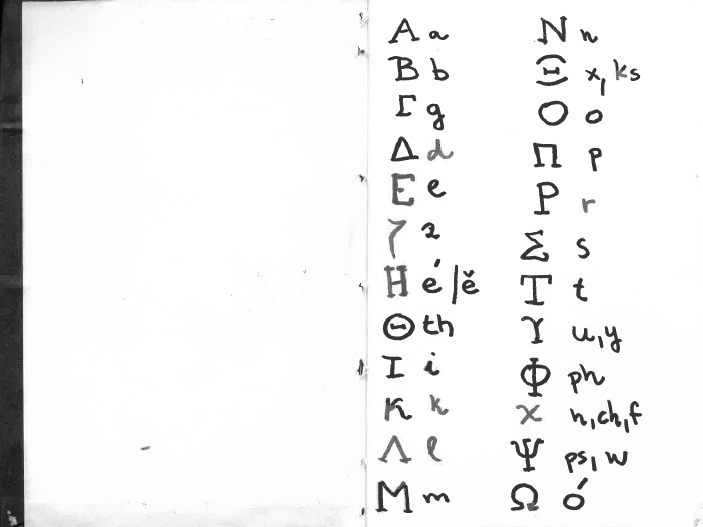 Α a
Β b
Γ g
Δ d
Ε e
ζ z
Η é/ě
Θ th
Ι i
Κ k
Λ l
Μ m
Ν n
Ξ x, ks
Ο o
Π p
Ρ r
Σ s
Τ t
Υ u, y
Φ ph
χ h, ch, f
Ψ ps, w
Ω ó